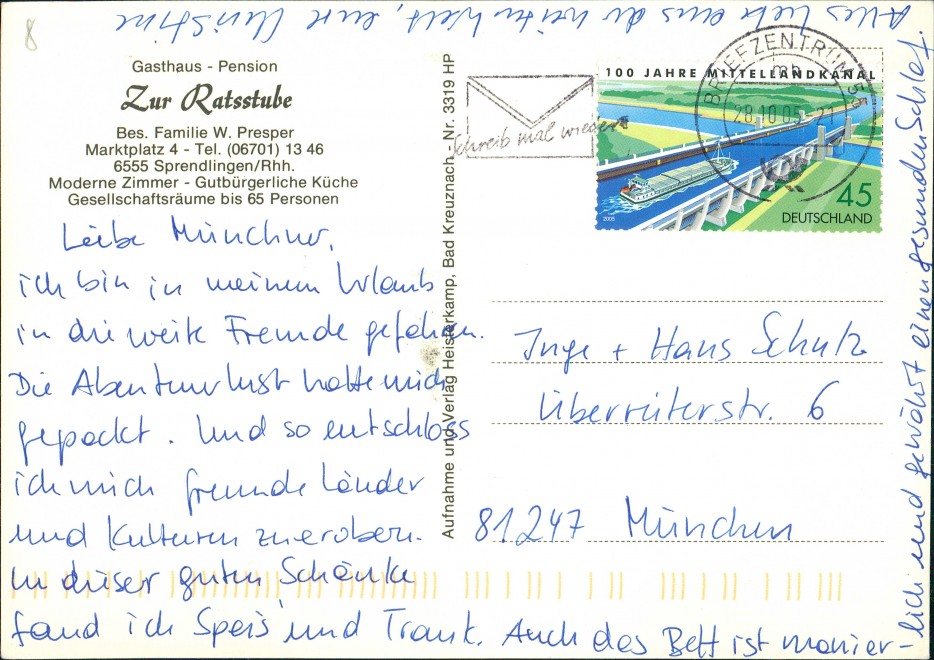 8
Gasthaus - Pension
Zur Ratsstube
Bes. Familie W. Presper
Marktplatz 4 - Tel. (06701) 13 46
6555 Sprendlingen/Rhh.
Moderne Zimmer - Gutbürgerliche Küche
Gesellschaftsräume bis 65 Personen
Liebe Münchner,
ich bin in meinem Urlaub
in die weite Fremde gefahren.
Die Abenteuerlust hatte mich
gepackt. Und so entschloss
ich mich fremde Länder
und Kulturen zu erobern.
In dieser guten Schänke
fand ich Speis' und Trank. Auch das Bett ist manier-
lich und gewährt einen gesunden Schlaf.
Alles Liebe aus der weiten Welt, eure Christine
Aufnahme und Verlag Heisterkamp, Bad Kreuznach - Nr. 3319 HP
Schreib mal wieder
100 JAHRE MITTELLANDKANAL
45
DEUTSCHLAND
2005
BRIEFZENTRUM 55
28.10.05-21
Inge + Hans Schulz
Überreiterstr. 6
81247 München